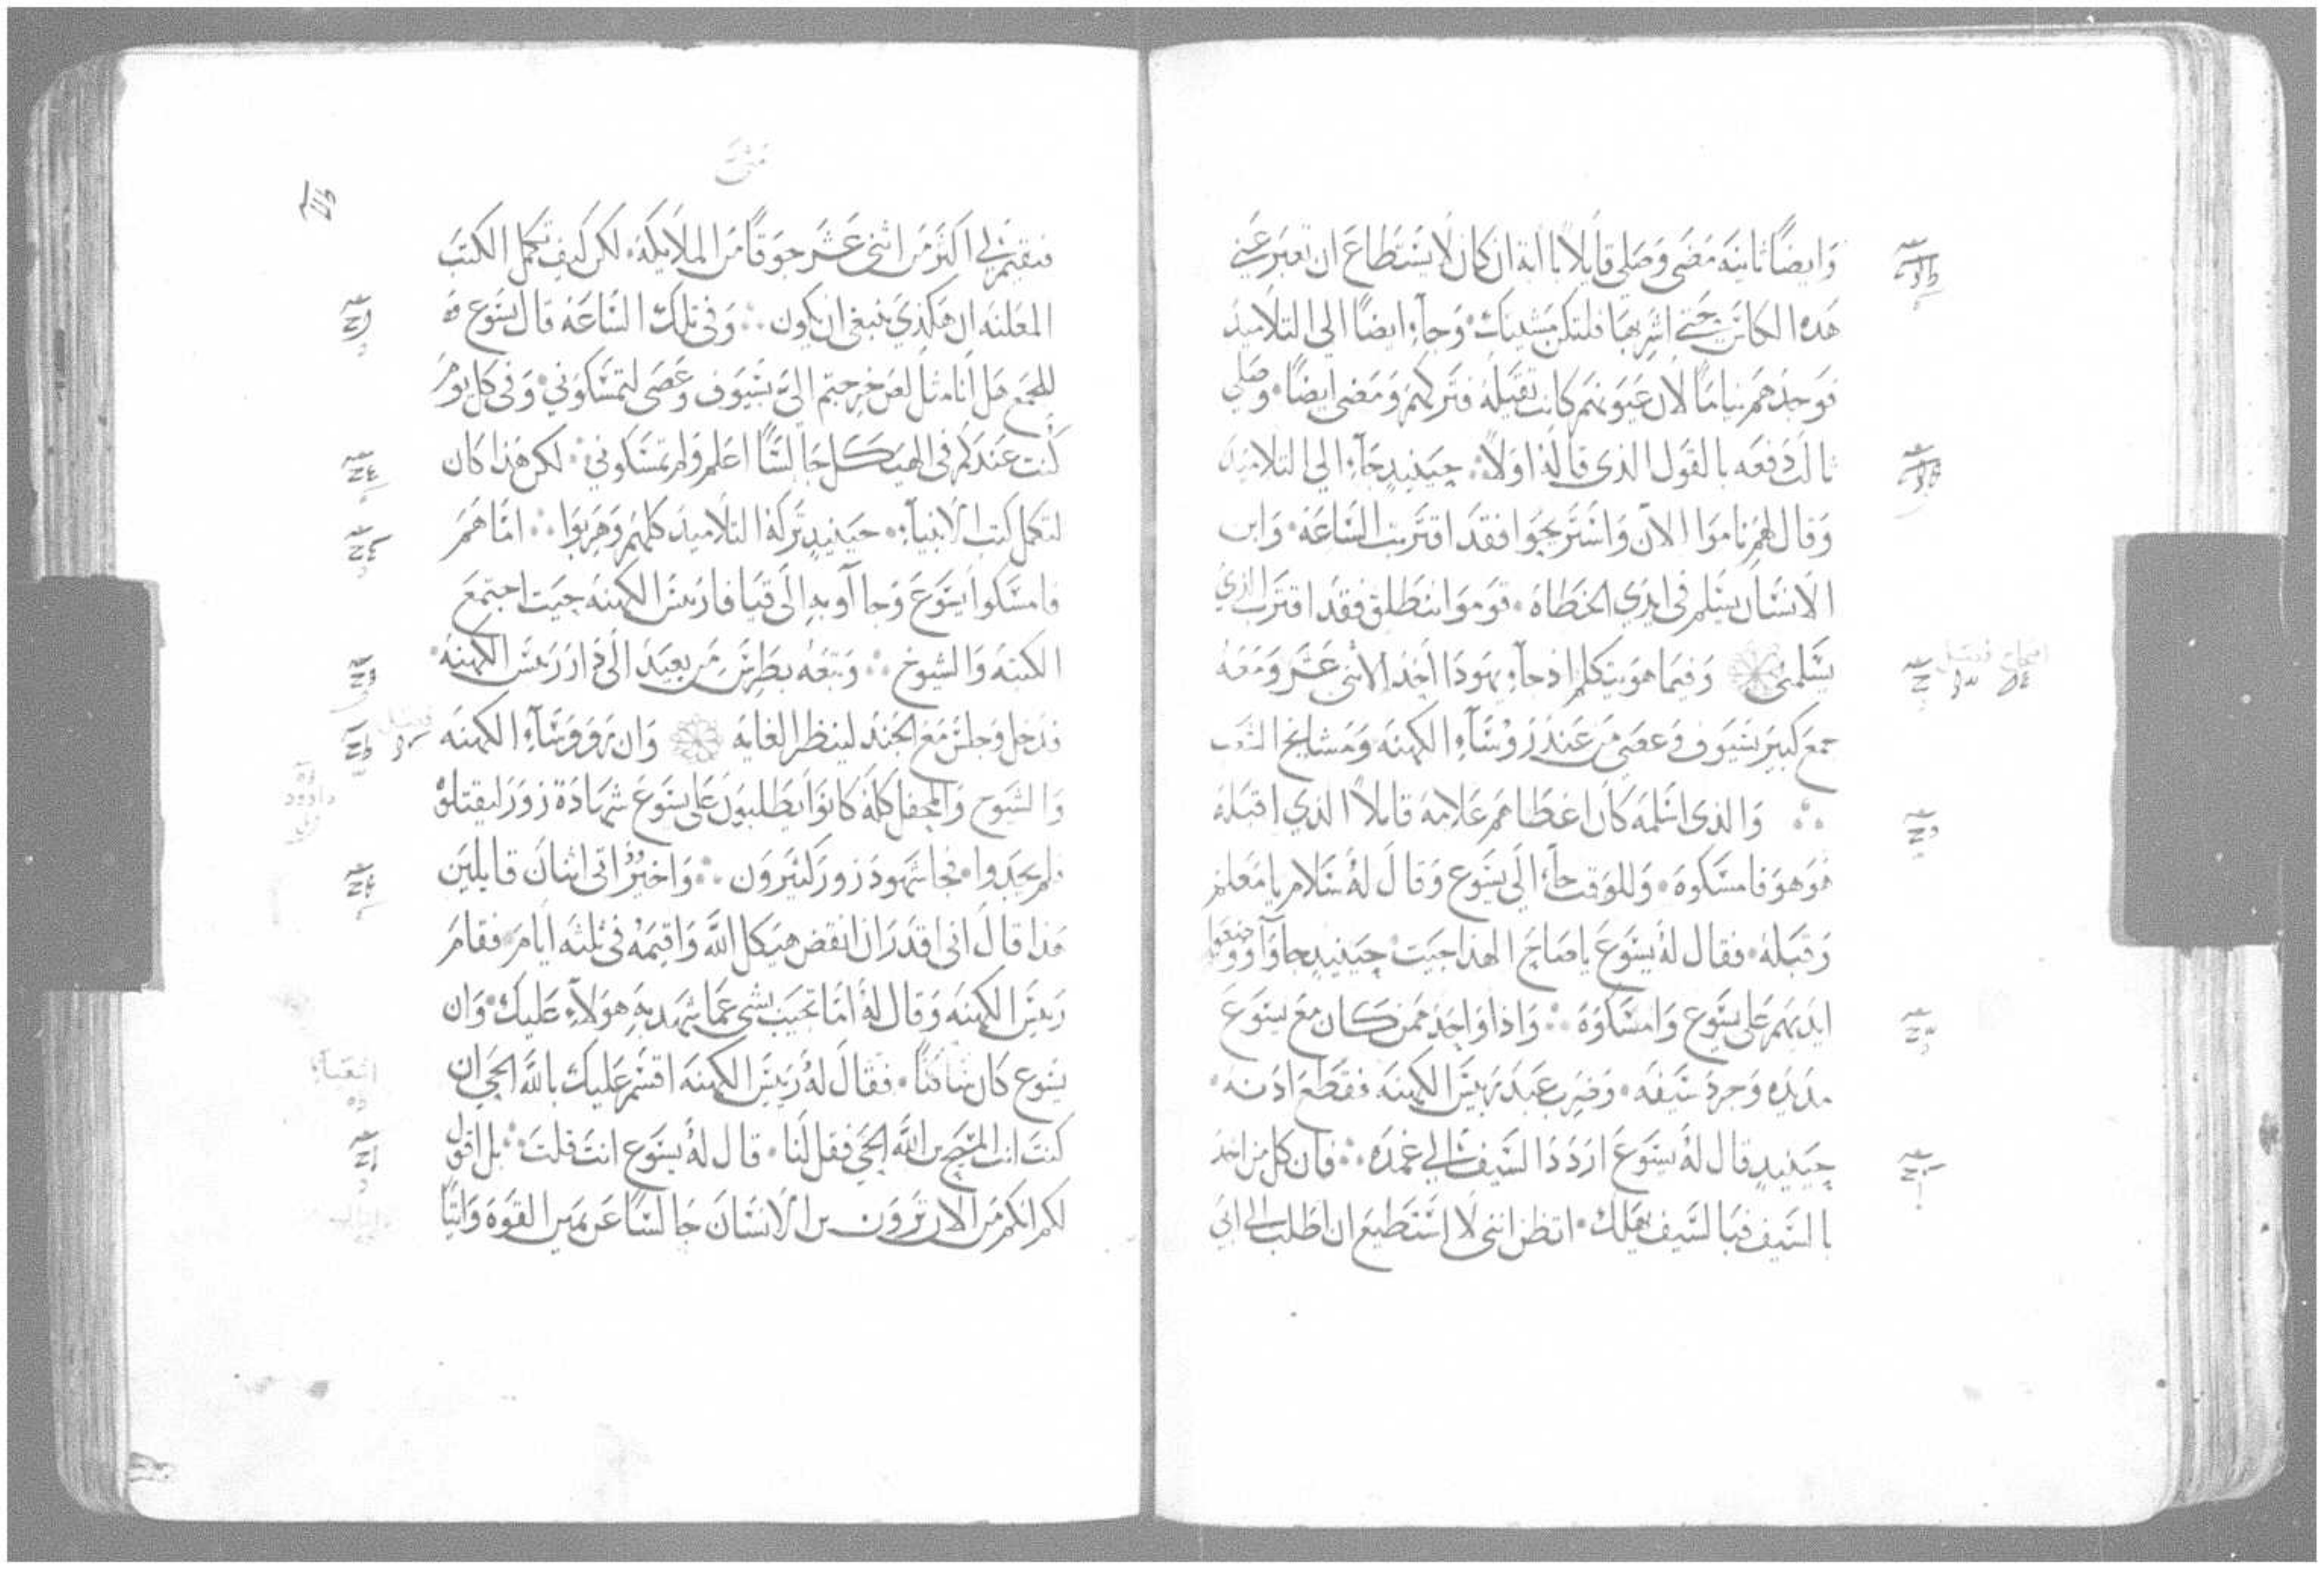 وَايضًا ثانيَة مَضَى وَصَلى قايلًا ياابَة ان كان لا يسْتطاعَ ان تعبَر عَني
هَذه الكاسَ حَتى اشرَبهَا فلتكن مشيتك وَجآء ايضًا الى التلاميذ
فوَجدَهم نيامًا لان عيَونهَم كانت ثقيَله فتَركهَم وَمَضى ايضًا وَصَلى
ثالث دَفعَه بالقوَل الذى قاله اوَلًا حيَنيذٍ جَآء الى التلاميذ
وَقال لهم نامَوا الآن وَاسْتَريحَوا فقدَ اقتَربَت السَاعَة وَابن
الانسَان يسَلم فى ايدي الخطاة قومَوا ننطلق فقدَ اقتَرب الذي
يسَلمنى وَفيمَا هوَ يتكلم اذ جآء يهوذا احَد الاثنى عَشَر وَمَعَه
جمعَ كبيَر بسيَوف وَعصَي مَن عَند رَوُسَآء الكهنَه وَمَشايخ الشعَب
وَالذى اسْلمَه كانَ اعطاهَم عَلامة قايلًا الذي اقبَله
هَوَ هوَ فامسَكوه وَللوَقت جآء الىَ يسَوع وَقال لهُ سَلام يا مَعَلم
وَقبَله فقال لهُ يسَوعَ ياصَاحَ الهذا جيَت حيَنيذٍ جآوَا وَوضعَوا
ايديهَم عَلى يسَوع وَامسَكوَه وَاذا وَاحِد ممَن كان مَع يسَوعَ
مد يدَه وَجردَ سَيفه وَضرَب عَبدَ رَييسَ الكهنَة فقطَع اذنه
حيَنيذٍ قال لهُ يسَوعَ ارَددَ السَيف الى غمدَه فان كل من اخذ
بالسَيف فبَالسَيف يهَلك اتظن اننى لَا اسْتَطيع ان اطلب الى ابي
متى
فيقيمَ لي اكثَر مَن اثنى عَشَر جوَقًا مَن الملَايكة لكن كيَف تكمل الكتبَ
المعَلنه ان هَكذي ينبغى ان يكون وَفى تلك السَاعَة قال يسَوع
للجمَع هَل انا مثل لصَ خرجتم الىَ بسيَوف وَعَصَى لتمسَكوَني وَفى كل يوَم
كنت عَندَكم فى الهيَكل جَالسًا اعَلم وَلم تمسَكوني لكن هَذا كان
لتكمل كتب الانبيآء حيَنيذٍ تَركهُ التلاميذ كلهَم وَهَربوَا امَا همَ
فامسَكوا يسَوَعَ وَجاآوا به الى قيَافا رَييسَ الكهنة حيَت اجتمعَ
الكتبَه وَالشيوخ وَتبعَه بطرسَ مَن بعيَد الى دار رَييسَ الكهنَه
فدَخل وَجلسَ مَع الجَند لينظر الغايَة وَان رَوُوَسَآء الكهنَه
وَالشيَوخ وَالمحَفل كلهُ كانوَا يَطلبوَن عَلى يسَوَعَ شهَادَة زورَ ليقتلوهْ
فلم يجَدوا فجا شهَود زورَ كثيَروَن وَاخيَرًا اتى اثنانَ قايليَن
هَذا قالَ انى اقدَر ان انقض هيَكل اللّه وَاقيمَهُ فى ثلثة ايامَ فقامَ
رَييسَ الكهنَه وَقال لهُ امَا تجيَب بشى عمَا شهَد به هوَلآء عَليك وَان
يسَوع كان سَاكتًا فقالَ لهُ رَييسَ الكهنَه اقسَم عَليك باللّه الحَي ان
كنت انت المسَيح بن اللّه الحَي فقل لَنا قال لهُ يسَوع انت قلتَ بل اقول
لكم انكم مَن الان ترَوَن بن الانسَانَ جَالسًا عَن يمَين القوَة وَاتيًا
اصحاح فصَل
فصَل
داوود
اشعَيآ